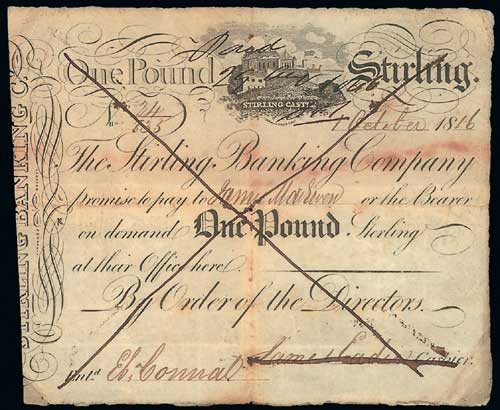 STIRLING BANKING Co.
Paid
One Pound Stirling.
STIRLING CASTLE
No. 24/665 1 October 1816
The Stirling Banking Company
promise to pay to James McEwen or the Bearer
on demand One Pound Sterling
at their Office here
By Order of the Directors.
Entd. Ebr. Connal James Cadell Cashier.